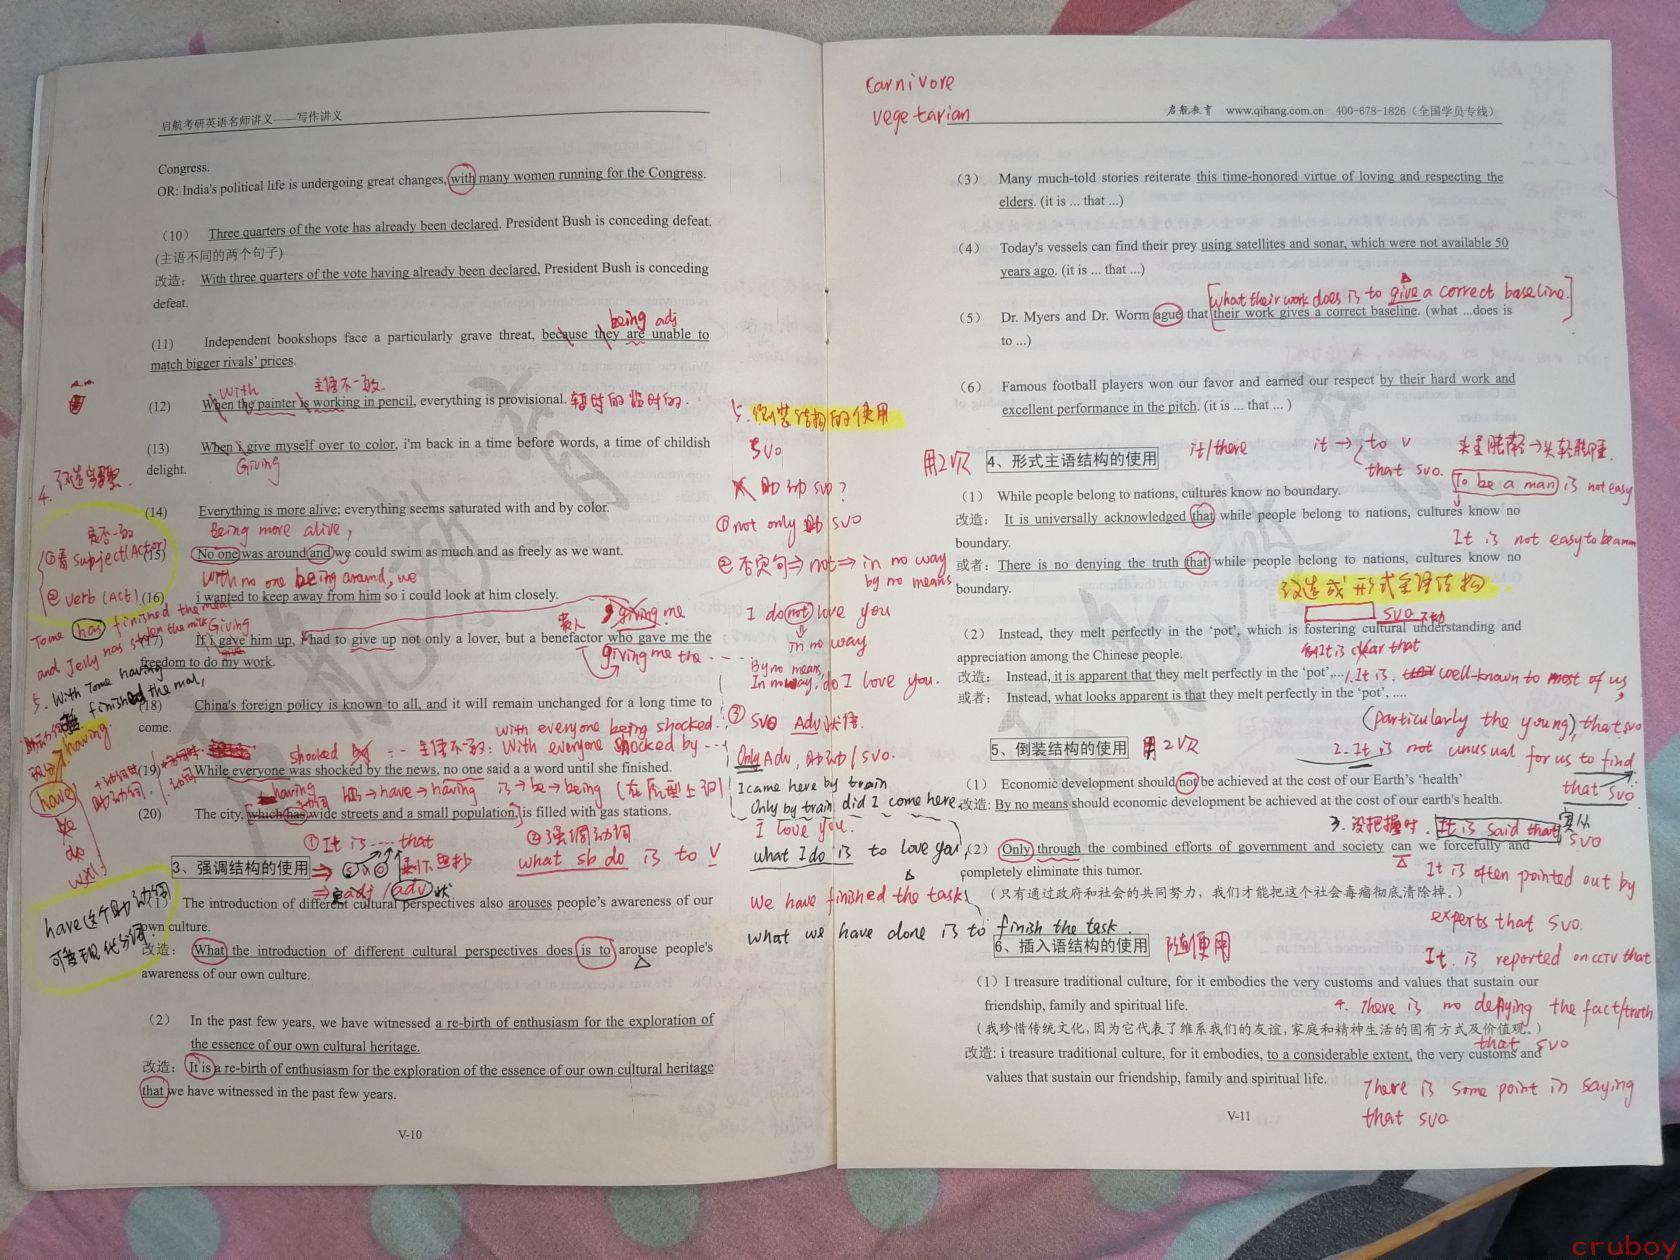 启航考研英语名师讲义——写作讲义
Congress.
OR: India's political life is undergoing great changes, with many women running for the Congress.
(10) Three quarters of the vote has already been declared. President Bush is conceding defeat.
(主语不同的两个句子)
改造： With three quarters of the vote having already been declared, President Bush is conceding
defeat.
being adj
(11) Independent bookshops face a particularly grave threat, because they are unable to
match bigger rivals' prices.
With 主语不一致.
(12) When the painter is working in pencil, everything is provisional. 暂时的 临时的.
(13) When i give myself over to color, i'm back in a time before words, a time of childish
delight.
Giving
4. 改造步骤.
(14) Everything is more alive; everything seems saturated with and by color.
Being more alive,
是否一致
①看 subject (Actor)
② verb (Act)
(15) No one was around and we could swim as much and as freely as we want.
With no one being around, we
(16) i wanted to keep away from him so i could look at him closely.
Tome has finished the meal
and Jerry has
giving me
Giving
(17) If i gave him up, i had to give up not only a lover, but a benefactor who gave me the
freedom to do my work.
giving me the ......
5. With Tome having
finished the meal,
(18) China's foreign policy is known to all, and it will remain unchanged for a long time to
come.
with everyone being shocked.
shocked by ... 主语不一致: With everyone shocked by ...
(19) While everyone was shocked by the news, no one said a a word until she finished.
having has→have→having is→be→being (在原型上词)
(20) The city, which has wide streets and a small population, is filled with gas stations.
having
have
be
do
will
have这个助动词
可变现在分词.
①It is .... that
②强调动词
what sb do is to V
3、强调结构的使用
剩下照抄
adj / adv 状
(1) The introduction of different cultural perspectives also arouses people's awareness of our
own culture.
改造： What the introduction of different cultural perspectives does is to arouse people's
awareness of our own culture.
(2) In the past few years, we have witnessed a re-birth of enthusiasm for the exploration of
the essence of our own cultural heritage.
改造： It is a re-birth of enthusiasm for the exploration of the essence of our own cultural heritage
that we have witnessed in the past few years.
V-10
5. 倒装结构的使用
SVO
助动 SVO?
①not only 助 SVO
②否定句⇒not⇒in no way
by no means
I do not love you
in no way
By no means,
In no way, do I love you.
③ SVO Adv状语.
Only Adv, 助动 / SVO.
I came here by train
Only by train did I come here.
I love you.
what I do is to love you,
We have finished the task
what we have done is to finish the task.
Carnivore
vegetarian
启航教育 www.qihang.com.cn 400-678-1826（全国学员专线）
(3) Many much-told stories reiterate this time-honored virtue of loving and respecting the
elders. (it is ... that ...)
(4) Today's vessels can find their prey using satellites and sonar, which were not available 50
years ago. (it is ... that ...)
[what their work does is to give a correct baseline.]
(5) Dr. Myers and Dr. Worm ague that their work gives a correct baseline. (what ...does is
to ...)
(6) Famous football players won our favor and earned our respect by their hard work and
excellent performance in the pitch. (it is ... that ... )
用2次
4、形式主语结构的使用
it/there
it → to v
that svo.
To be a man is not easy
It is not easy to be a man
(1) While people belong to nations, cultures know no boundary.
改造： It is universally acknowledged that while people belong to nations, cultures know no
boundary.
或者: There is no denying the truth that while people belong to nations, cultures know no
boundary.
改造成形式主语结构
SVO 不动
(2) Instead, they melt perfectly in the 'pot', which is fostering cultural understanding and
appreciation among the Chinese people.
It is clear that
改造： Instead, it is apparent that they melt perfectly in the 'pot',...
或者： Instead, what looks apparent is that they melt perfectly in the 'pot', ....
1. It is well-known to most of us,
(particularly the young), that svo
5、倒装结构的使用
用2次
2. It is not unusual for us to find
that svo
(1) Economic development should not be achieved at the cost of our Earth's 'health'
改造: By no means should economic development be achieved at the cost of our earth's health.
3. 没把握时. It is said that SVO
(2) Only through the combined efforts of government and society can we forcefully and
completely eliminate this tumor.
（只有通过政府和社会的共同努力，我们才能把这个社会毒瘤彻底清除掉。）
It is often pointed out by
experts that svo.
6、插入语结构的使用
随便用
It is reported on CCTV that
(1) I treasure traditional culture, for it embodies the very customs and values that sustain our
friendship, family and spiritual life.
4. There is no denying the fact/truth
that svo
（我珍惜传统文化，因为它代表了维系我们的友谊，家庭和精神生活的固有方式及价值观。）
改造: i treasure traditional culture, for it embodies, to a considerable extent, the very customs and
values that sustain our friendship, family and spiritual life.
There is some point in saying
that svo.
V-11
cruboy